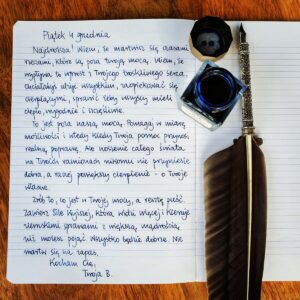 Piątek 4 grudnia
Najdroższa! Wiem, że martwisz się czasami
rzeczami, które są poza Twoją mocą. Wiem, że
wypływa to wprost z Twojego troskliwego serca,
chciałabyś ulżyć wszystkim, zaopiekować się
cierpiącymi, sprawić żeby wszyscy mieli
ciepło, wygodnie i szczęśliwie.
To jest poza naszą mocą. Pomagaj w miarę
możliwości i wtedy kiedy Twoja pomoc przynosi
realną poprawę. Ale noszenie całego świata
na Twoich ramionach nikomu nie przyniesie
dobra, a raczej powiększy cierpienie - o Twoje
własne.
Zrób to, co jest w Twojej mocy, a resztę puść.
Zawierz Sile Wyższej, która widzi więcej i kieruje
ziemskimi sprawami z większą mądrością,
niż możesz pojąć. Wszystko będzie dobrze. Nie
martw się na zapas.
Kocham Cię,
Twoja B.